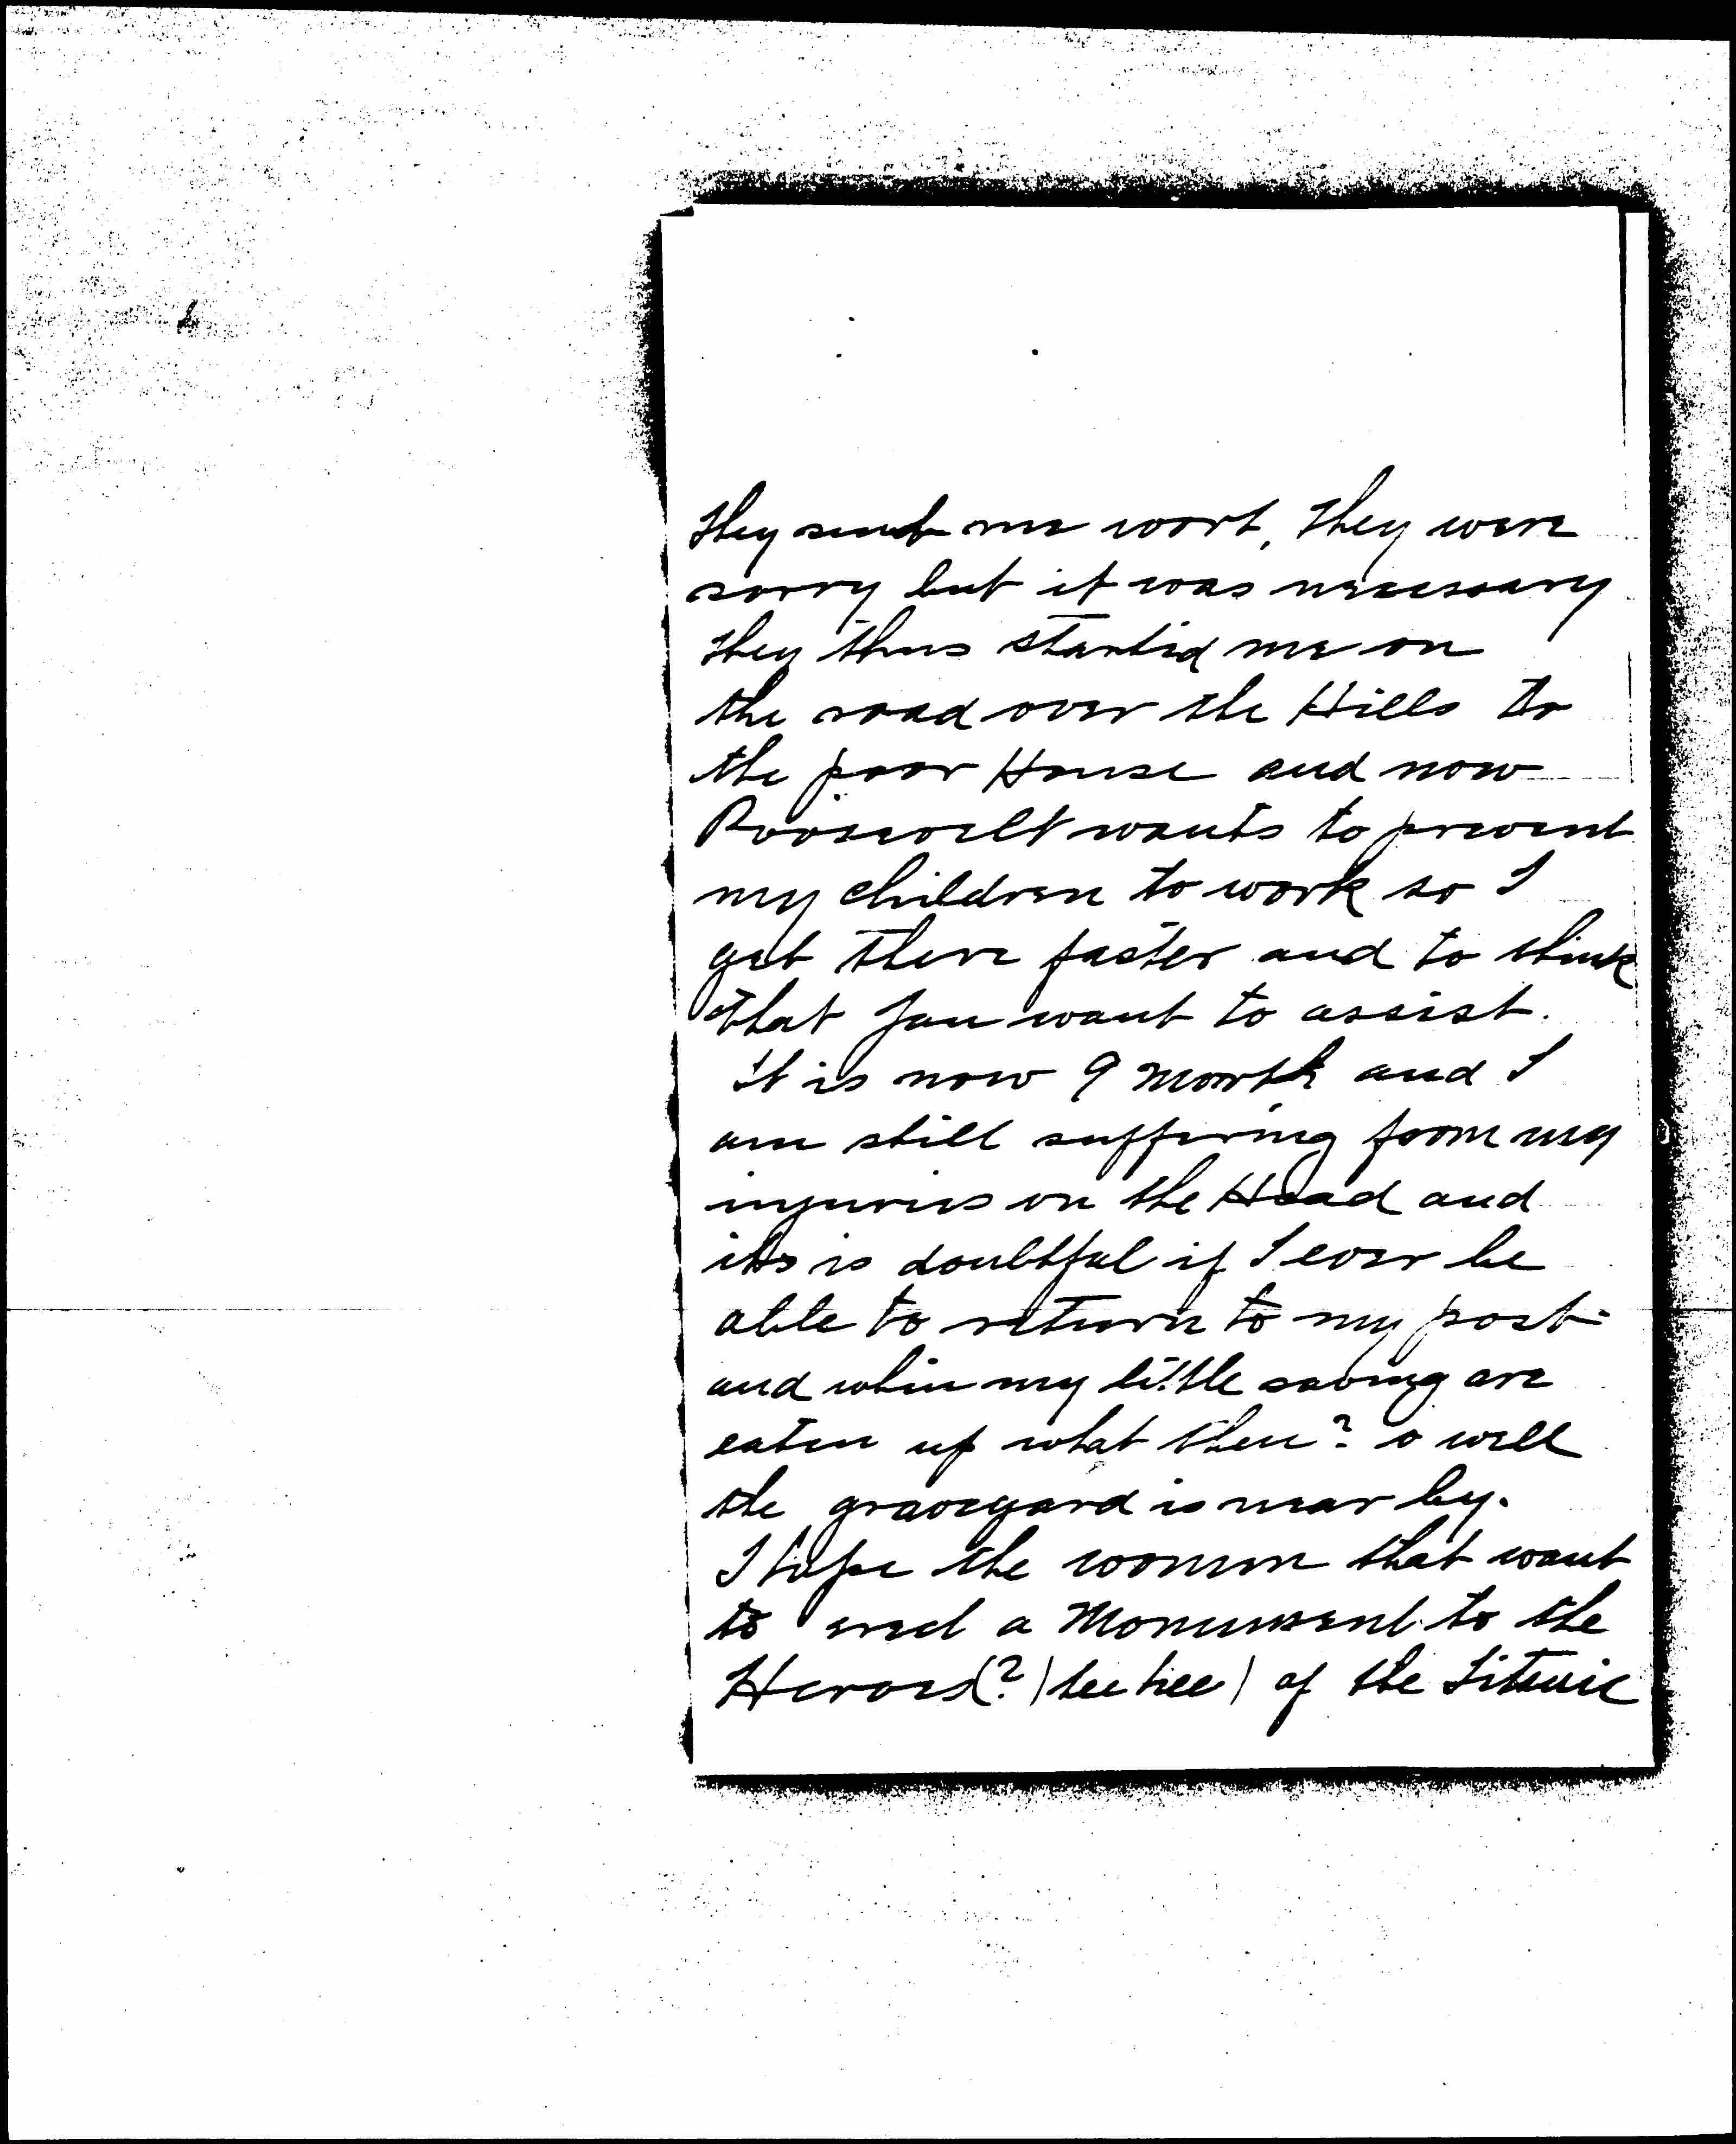 they send me wort, they were
sorry but it was necessary
they thus started me on
the road over the Hills to
the poor House and now
Roosevelt wants to prevent
my children to work so I
get there faster and to think
that you want to assist.
it is now 9 month and I
am still suffering from my
injuries on the Head and
its is doubtful if I ever be
able to return to my post-
and when my little saving are
eaten up what then? o well
the graveyard is near by.
I hope the women that want
to erect a Monument to the
Heroes(?) hee hee) of the Titanic